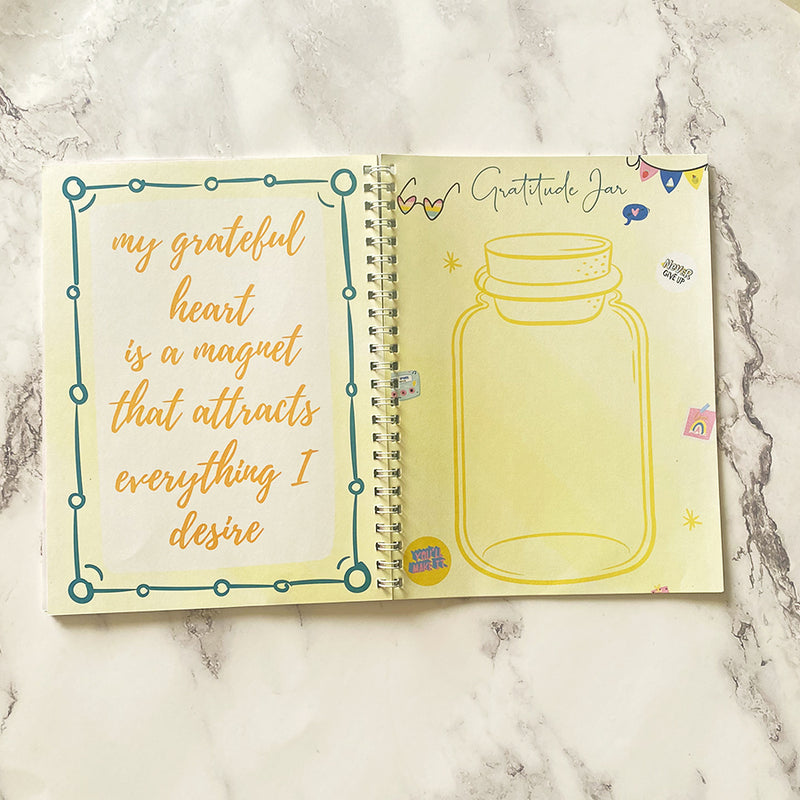 my grateful
heart
is a magnet
that attracts
everything I
desire
Gratitude Jar
NEVER
GIVE UP
YOU'LL
MAKE IT